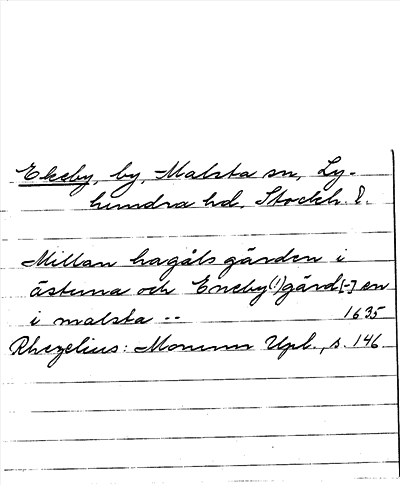 Ekeby, by, Malsta sn, Ly-
hundra hd, Stockh. l.
Millan hagåls gården i
ästuna och Eneby(!)gärd[-]en
i malsta --
1635
Rhezelius: Monum Upl., s. 146.